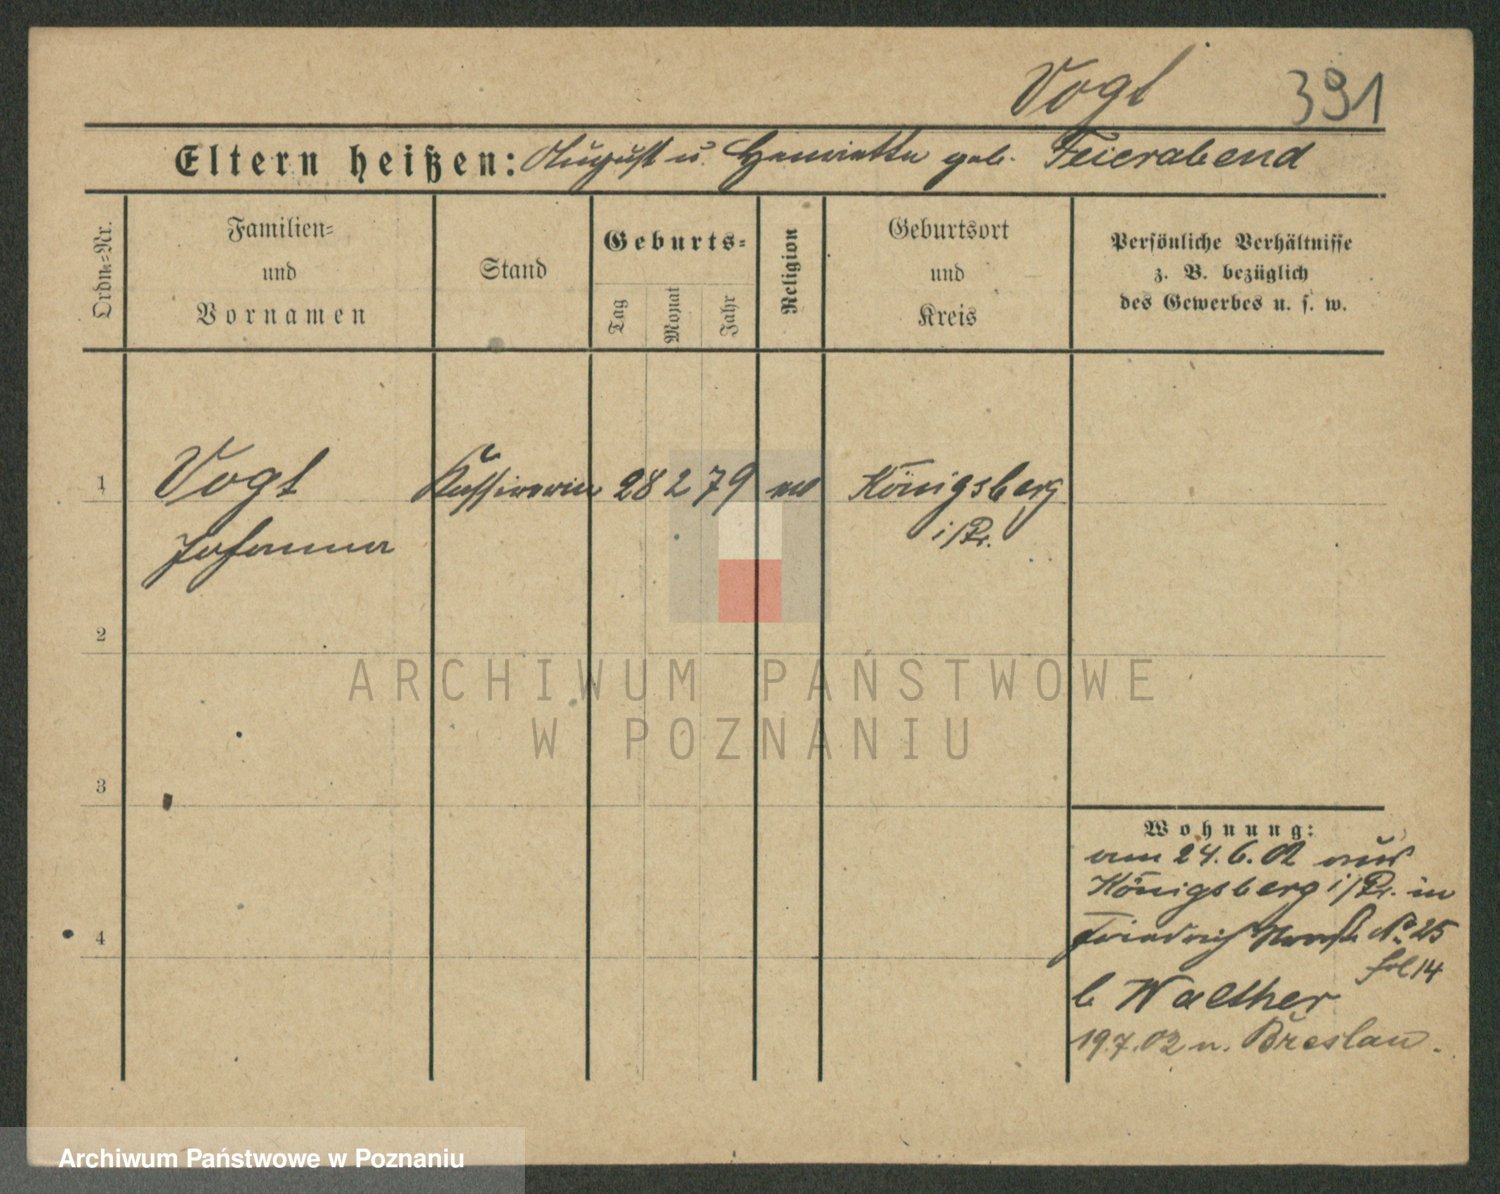 Vogt 391
Eltern heißen: August u. Henriette geb. Feierabend
Ordn.-Nr.
Familien-
und
Vornamen
Stand
Geburts-
Tag
Monat
Jahr
Religion
Geburtsort
und
Kreis
Persönliche Verhältnisse
z. B. bezüglich
des Gewerbes u. s. w.
1 Vogt Kassirerin 28 2 79 ev Königsberg
Johanna i/Pr.
2
ARCHIWUM PAŃSTWOWE
W POZNANIU
3
Wohnung:
am 24.6.02 aus
Königsberg i/Pr. in
4
Friedrichstr. No 25
b Walther
19.7.02 n. Breslau.
Archiwum Państwowe w Poznaniu